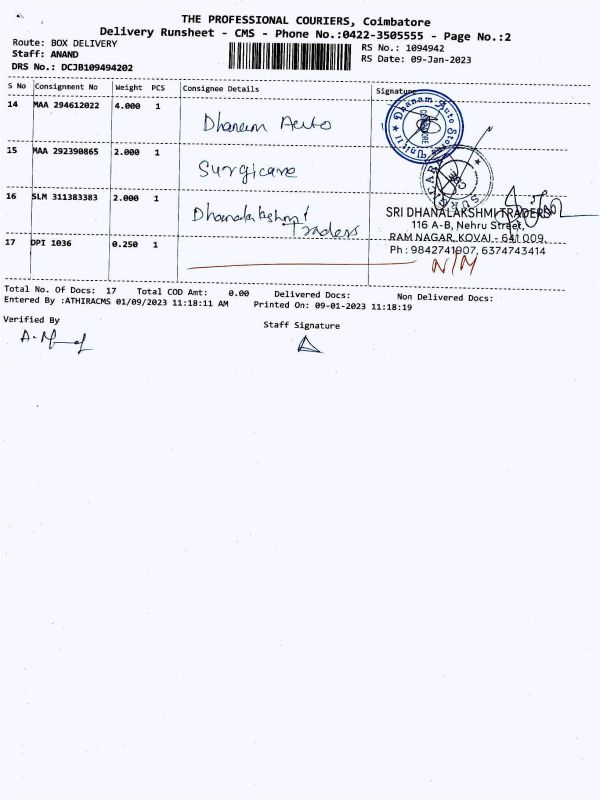 THE PROFESSIONAL COURIERS, Coimbatore
Delivery Runsheet - CMS - Phone No.:0422-3505555 - Page No.:2
Route: BOX DELIVERY
RS No.: 1094942
Staff: ANAND
RS Date: 09-Jan-2023
DRS No.: DCJB109494202
S No Consignment No Weight PCS Consignee Details Signature
14 MAA 294612022 4.000 1 Dhanam Auto
Dhanam Auto Stores
15 MAA 292390865 2.000 1 Surgicare
16 SLM 311383383 2.000 1 Dhanalakshmi Traders
SRI DHANALAKSHMI TRADERS
116 A-B, Nehru Street,
RAM NAGAR, KOVAI - 641 009.
Ph : 9842741907, 6374743414
17 DPI 1036 0.250 1 N/M
Total No. Of Docs: 17 Total COD Amt: 0.00 Delivered Docs: Non Delivered Docs:
Entered By :ATHIRACMS 01/09/2023 11:18:11 AM Printed On: 09-01-2023 11:18:19
Verified By Staff Signature